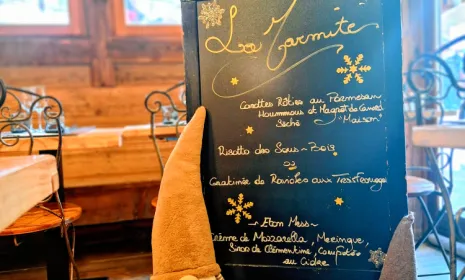 La Marmite
Carottes Rôties au Parmesan
Hoummous et Magret de Canard
Séché "Maison"
Risotto des Sous-Bois
ou
Gratinée de Ravioles aux Trois Fromages
~ Eton Mess ~
Crème de Mozzarella, Meringue,
Sirop de Clémentine, Compotée
au Cidre